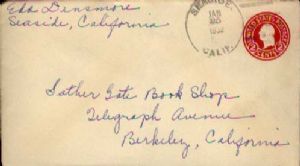 Eda Densmore
Seaside, California
SEASIDE,
JAN
CALIF.
UNITED STATES
Sather Gate Book Shop
Telegraph Avenue
Berkeley, California